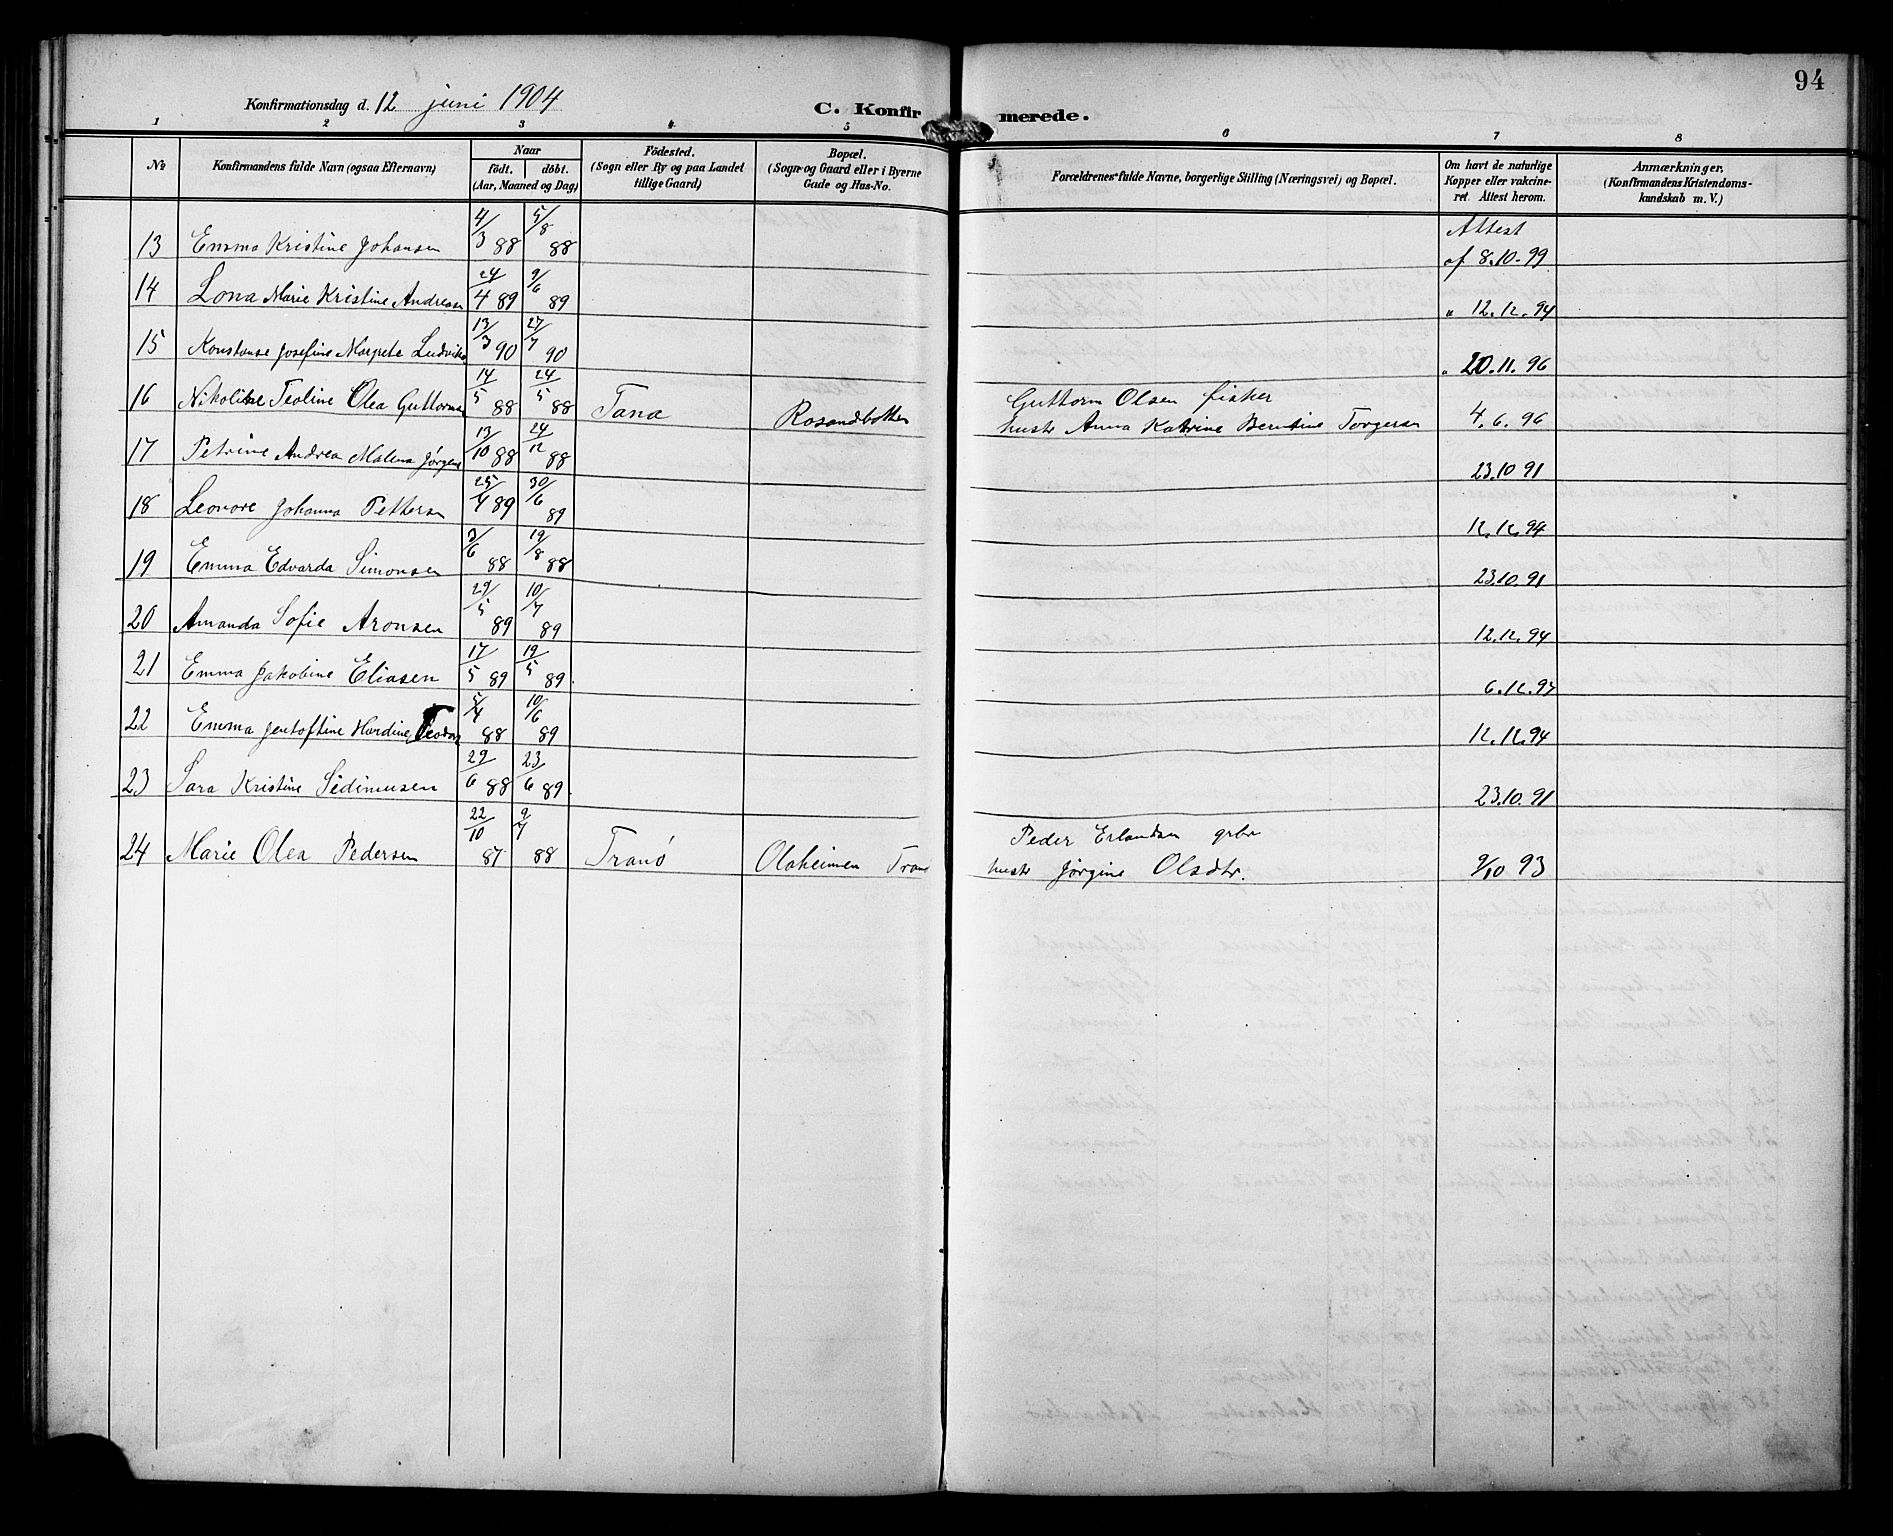 94
Konfirmationsdag d. 12 juni 1904
C. Konfirmerede.
1 2 3 4 5 6 7 8
No. Konfirmandens fulde Navn (ogsaa Efternavn) Naar født. døbt. (Aar, Maaned og Dag) Fødested. (Sogn eller By og paa Landet tillige Gaard) Bopæl. (Sogn og Gaard eller i Byerne Gade og Hus-No. Forældrenes fulde Navne, borgerlige Stilling (Næringsvei) og Bopæl. Om havt de naturlige Kopper eller vakcineret. Attest herom. Anmærkninger. (Konfirmandens Kristendomskundskab m. V.)
13 Emma Kristine Johansen 4/3 88 5/8 88 Attest af 8.10.99
14 Lona Marie Kristine Andreasen 24/4 89 9/6 89 " 12.12.94
15 Konstanse Josefine Margrete Ludviks 13/3 90 27/7 90 " 20.11.96
16 Nikoline Teoline Olea Guttorms 14/5 88 24/5 88 Tana Rosandbotten Guttorm Olsen fisker
hustr Anna Katrine Berntine Torgersen 4.6.96
17 Petrine Andrea Malena Jørgens 13/10 88 24/12 88 23.10 91
18 Leonore Johanna Pettersen 25/4 89 30/6 89 12.12.94
19 Emma Edvarda Simonsen 3/6 88 19/8 88 23.10.91
20 Amanda Sofie Aronsen 29/5 89 10/7 89 12.12.94
21 Emma Jakobine Eliasen 17/5 89 19/5 89 6.12.94
22 Emma Jentoftine Hardine Teodor 5/4 88 10/6 89 12.12.94
23 Sara Kristine Sedimusen 29/6 88 23/6 89 23.10.91
24 Marie Olea Pedersen 22/10 87 9/7 88 Tranø Olaheimen Tranø Peder Erlandsen grbr
hustr Jørgine Olsdtr. 9/10 93